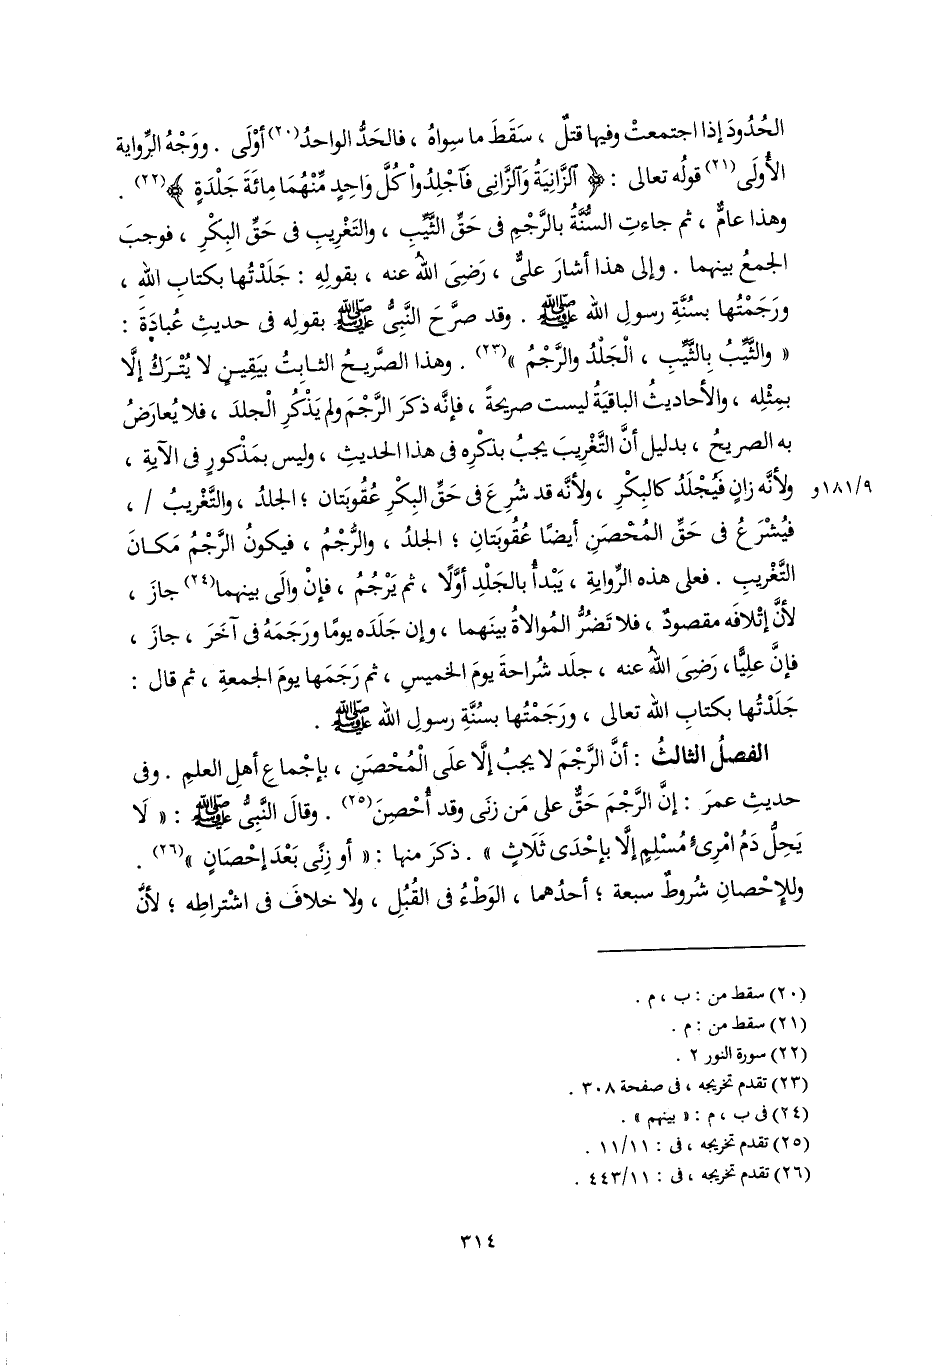 الحُدُودَ إذا اجتمعتْ وفيها قتلٌ ، سَقَطَ ما سِواهُ ، فالحَدُّ الواحدُ(٢٠) أوْلَى . ووَجْهُ الرِّواية
الأُولَى(٢١) قولُه تعالى : ﴿ ٱلزَّانِيَةُ وَٱلزَّانِى فَٱجْلِدُوا۟ كُلَّ وَاحِدٍ مِّنْهُمَا مِائَةَ جَلْدَةٍ ﴾(٢٢) .
وهذا عامٌّ ، ثم جاءتِ السُّنَّةُ بالرَّجْمِ فى حَقِّ الثَّيِّبِ ، والتَغْريبِ فى حَقِّ البِكْرِ ، فوجبَ
الجمعُ بينهما . وإلى هذا أشارَ علىٌّ ، رَضِىَ اللهُ عنه ، بقولِهِ : جَلَدْتُها بكتابِ اللهِ ،
ورَجَمْتُها بسُنَّةِ رسولِ الله ﷺ . وقد صرَّحَ النَّبِىُّ ﷺ بقولِه فى حديثِ عُبادَةَ :
« والثَّيِّبُ بالثَّيِّبِ ، الْجَلْدُ والرَّجْمُ »(٢٣) . وهذا الصَّريحُ الثابتُ بيَقِينٍ لا يُتْرَكُ إلَّا
بمِثْلِه ، والأحاديثُ الباقيَةُ ليست صريحةً ، فإنَّه ذكرَ الرَّجْمَ ولم يَذْكُرِ الْجلدَ ، فلا يُعارَضُ
به الصريحُ ، بدليل أنَّ التَّغْريبَ يجبُ بذكْرِه فى هذا الحديثِ ، وليس بمَذْكورٍ فى الآيةِ ،
ولأنَّه زانٍ فَيُجْلَدُ كالبِكْرِ ، ولأنَّه قد شُرِعَ فى حَقِّ البِكْرِ عُقُوبَتان ؛ الجلدُ ، والتَّغْريبُ / ، ١٨١/٩و
فيُشْرَعُ فى حَقِّ المُحْصَنِ أيضًا عُقُوبَتانِ ؛ الجلدُ ، والرَّجْمُ ، فيكونُ الرَّجْمُ مَكانَ
التَّغْريبِ . فعلى هذه الرِّوايةِ ، يَبْدأُ بالجَلْدِ أوَّلًا ، ثم يَرْجُمُ ، فإنْ والَى بينهما(٢٤) جازَ ،
لأنَّ إتْلافَه مقصودٌ ، فلا تَضُرُّ المُوالاةُ بينَهما ، وإن جَلَدَه يومًا ورَجَمَهُ فى آخَرَ ، جازَ ،
فإنَّ عليًّا ، رَضِىَ اللهُ عنه ، جلَد شُراحةَ يومَ الخميسِ ، ثم رَجَمَها يومَ الجمعةِ ، ثم قال :
جَلَدْتُها بكتابِ الله تعالى ، ورَجَمْتُها بسُنَّةِ رسولِ الله ﷺ .
الفصلُ الثالثُ : أنَّ الرَّجْمَ لا يجبُ إلَّا علَى الْمُحْصَنِ ، بإجْماعِ أهلِ العلمِ . وفى
حديثِ عمرَ : إنَّ الرَّجْمَ حَقٌّ على مَن زنَى وقد أُحْصِنَ(٢٥) . وقالَ النَّبِىُّ ﷺ : « لَا
يَحِلُّ دَمُ امْرِئٍ مُسْلِمٍ إلَّا بإحْدَى ثَلَاثٍ » . ذكرَ منها : « أو زِنًى بَعْدَ إحْصَانٍ »(٢٦) .
وللإحْصانِ شُروطٌ سبعة ؛ أحدُهما ، الوَطْءُ فى القُبُلِ ، ولا خلافَ فى اشْتراطِه ؛ لأنَّ
(٢٠) سقط من : ب ، م .
(٢١) سقط من : م .
(٢٢) سورة النور ٢ .
(٢٣) تقدم تخريجه ، فى صفحة ٣٠٨ .
(٢٤) فى ب ، م : « بينهم » .
(٢٥) تقدم تخريجه ، فى : ١١/١١ .
(٢٦) تقدم تخريجه ، فى : ٤٤٣/١١ .
٣١٤